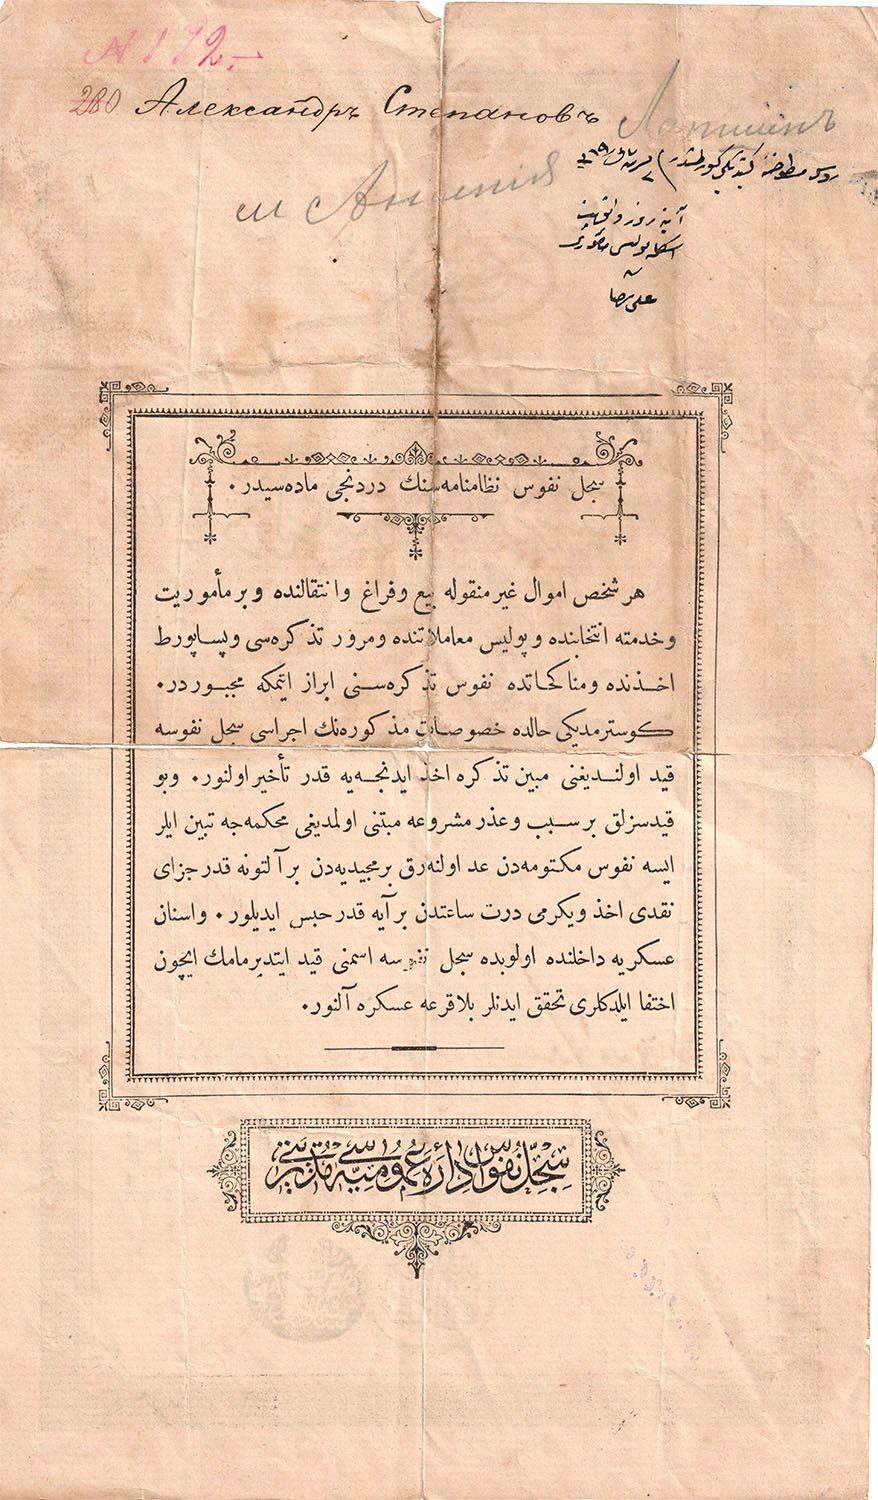 A 172.-
280 Александръ Степановъ Лапшинъ
علی رضا
سجل نفوس نظامنامه‌سنك دردنجی ماده‌سیدر٠
هر شخص اموال غیر منقوله بیع و فراغ و انتقالنده و بر مأموریت
و خدمته انتخابنده و پولیس معاملاتنده و مرور تذكره‌سی و پساپورط
اخذنده و مناكحاتده نفوس تذكره‌سنی ابراز ایتمكه مجبوردر٠
كوسترمدیكی حالده خصوصات مذكوره‌نك اجراسی سجل نفوسه
قید اولندیغنی مبین تذكره اخذ ایدنجه‌یه قدر تأخیر اولنور٠ وبو
قیدسزلق بر سبب و عذر مشروعه مبتنی اولمدیغی محكمه‌جه تبین ایلر
ایسه نفوس مكتومه‌دن عد اولنه‌رق بر مجیدیه‌دن بر آلتونه قدر جزای
نقدی اخذ و یكرمی درت ساعتدن بر آیه قدر حبس ایدیلور٠ و اسنان
عسكریه داخلنده اولوبده سجل نفوسه اسمنی قید ایتدیرمامك ایچون
اختفا ایلدكلری تحقق ایدنلر بلا قرعه عسكره آلنور٠
سِجِلّ نُفُوس اِدَارَهٔ عُمُومِيَّه‌سِی مُدِيرِيَّتی